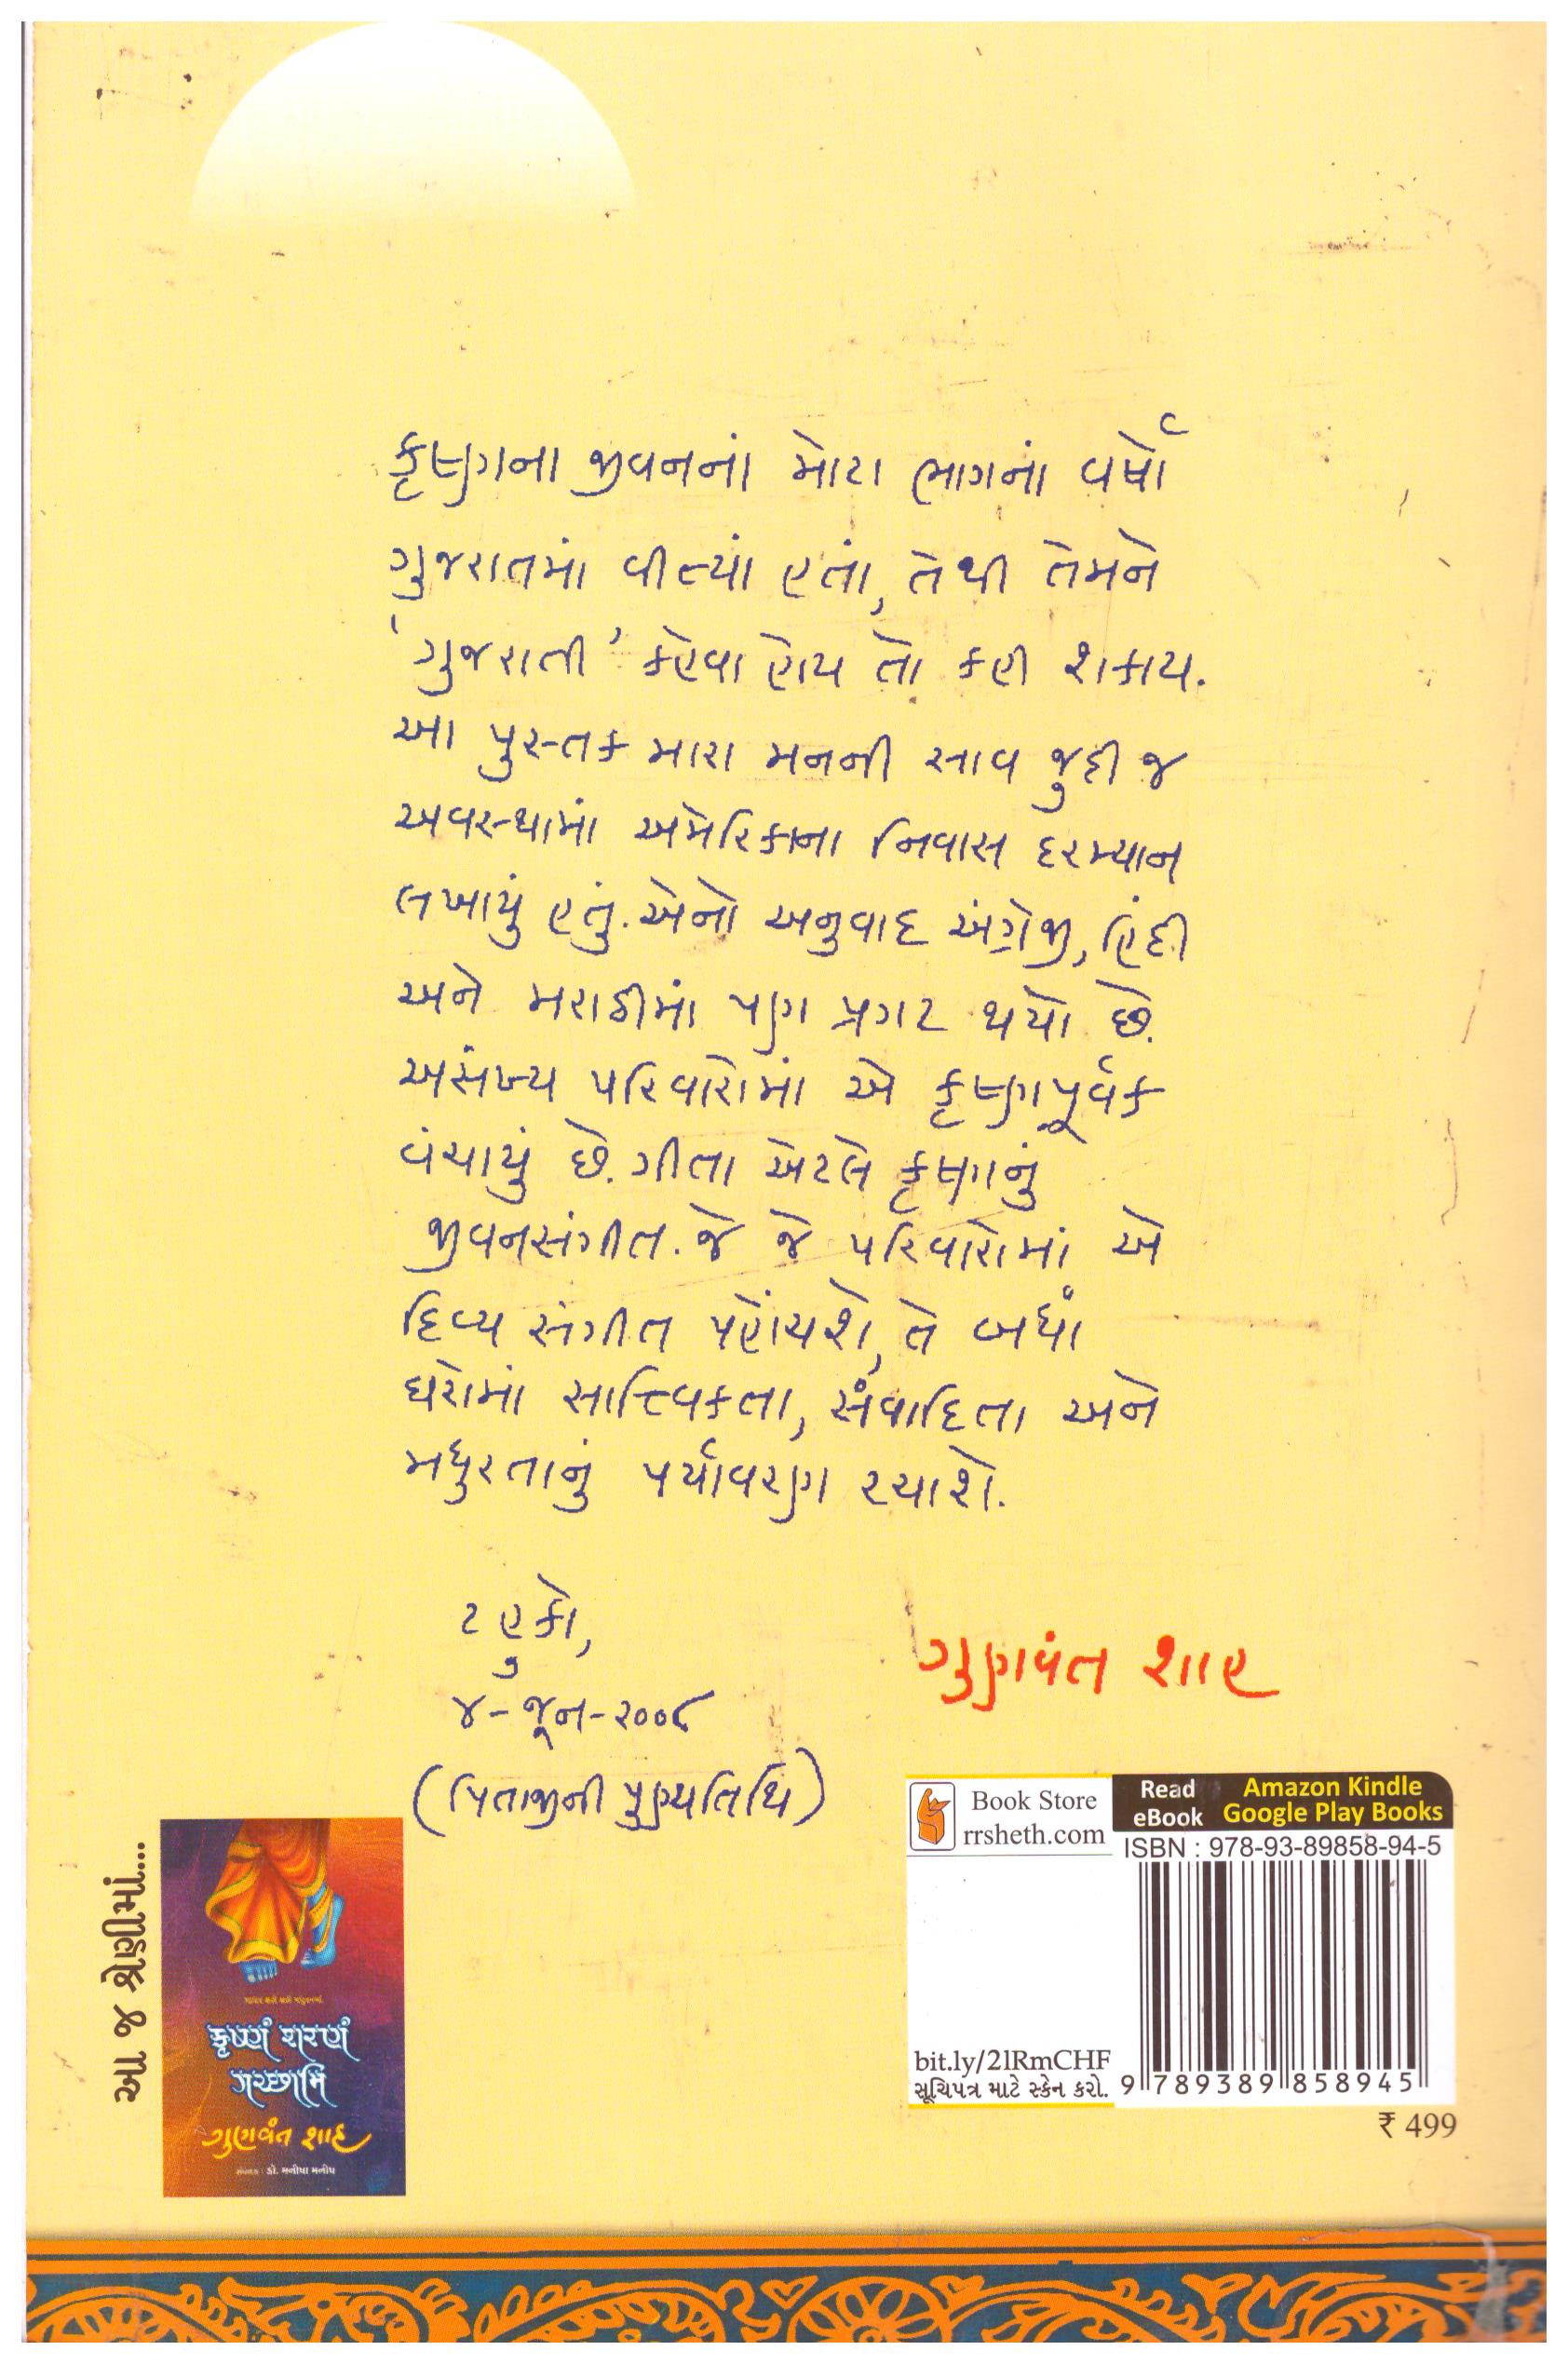 કૃષ્ણના જીવનનાં મોટા ભાગનાં વર્ષો
ગુજરાતમાં વીત્યાં હતાં, તેથી તેમને
'ગુજરાતી' કહેવા હોય તો કહી શકાય.
આ પુસ્તક મારા મનની સાવ જુદી જ
અવસ્થામાં અમેરિકાના નિવાસ દરમ્યાન
લખાયું હતું. એનો અનુવાદ અંગ્રેજી, હિંદી
અને મરાઠીમાં પણ પ્રગટ થયો છે.
અસંખ્ય પરિવારોમાં એ કૃષ્ણપૂર્વક
વંચાયું છે. ગીતા એટલે કૃષ્ણનું
જીવનસંગીત. જે જે પરિવારોમાં એ
દિવ્ય સંગીત પહોંચશે, તે બધાં
ઘરોમાં સાત્ત્વિકતા, સંવાદિતા અને
મધુરતાનું પર્યાવરણ રચાશે.
ટહુકો,
૪-જૂન-૨૦૦૮
(પિતાજીની પુણ્યતિથિ)
ગુણવંત શાહ
આ જ શ્રેણીમાં...
કૃષ્ણં શરણં
ગચ્છામિ
ગુણવંત શાહ
સંપાદક : ડૉ. મનીષા મનીષ
Book Store
rrsheth.com
Read eBook
Amazon Kindle
Google Play Books
ISBN : 978-93-89858-94-5
bit.ly/2lRmCHF
સૂચિપત્ર માટે સ્કેન કરો.
9 789389 858945
₹ 499